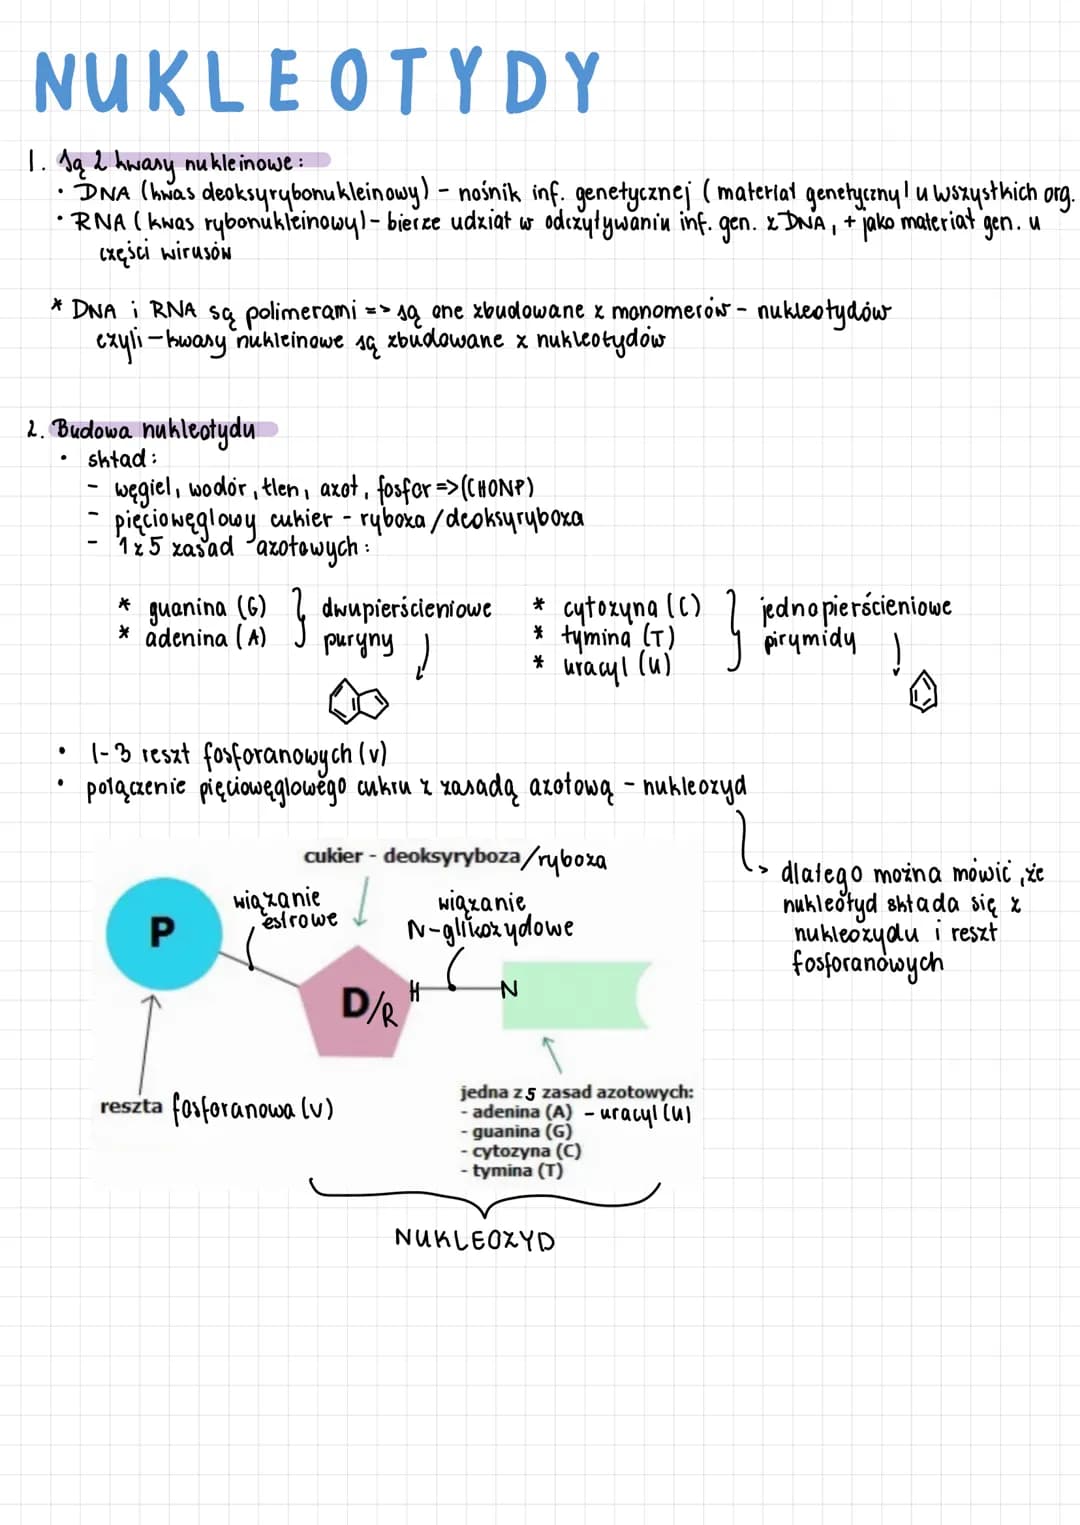 NUKLEOTYDY
1. Są 2 kwasy nukleinowe:
• DNA (kwas deoksyrybonukleinowy) - nośnik inf. genetycznej (materiał genetyczny) u wszystkich org.
• RNA (kwas rybonukleinowy) - bierze udział w odczytywaniu inf. gen. z DNA, + jako materiał gen. u
części wirusów
* DNA i RNA są polimerami => są one zbudowane z monomerów - nukleotydów
czyli - kwasy nukleinowe są zbudowane z nukleotydów
2. Budowa nukleotydu
• skład:
- węgiel, wodór, tlen, azot, fosfor => (CHONP)
- pięciowęglowy cukier - ryboza/deoksyryboza
- 1 z 5 zasad azotowych:
* guanina (G) } dwupierścieniowe * cytozyna (C) } jednopierścieniowe
* adenina (A) puryny * tymina (T) pirymidy
* uracyl (U)
• 1-3 reszt fosforanowych (V)
• połączenie pięciowęglowego cukru z zasadą azotową - nukleozyd
cukier - deoksyryboza/ryboza
dlatego można mówić, że
nukleotyd składa się z
nukleozydu i reszt
fosforanowych
wiązanie
estrowe
wiązanie
N-glikozydowe
P
D/R
H
N
reszta fosforanowa (V)
jedna z 5 zasad azotowych:
- adenina (A) - uracyl (U)
- guanina (G)
- cytozyna (C)
- tymina (T)
NUKLEOZYD